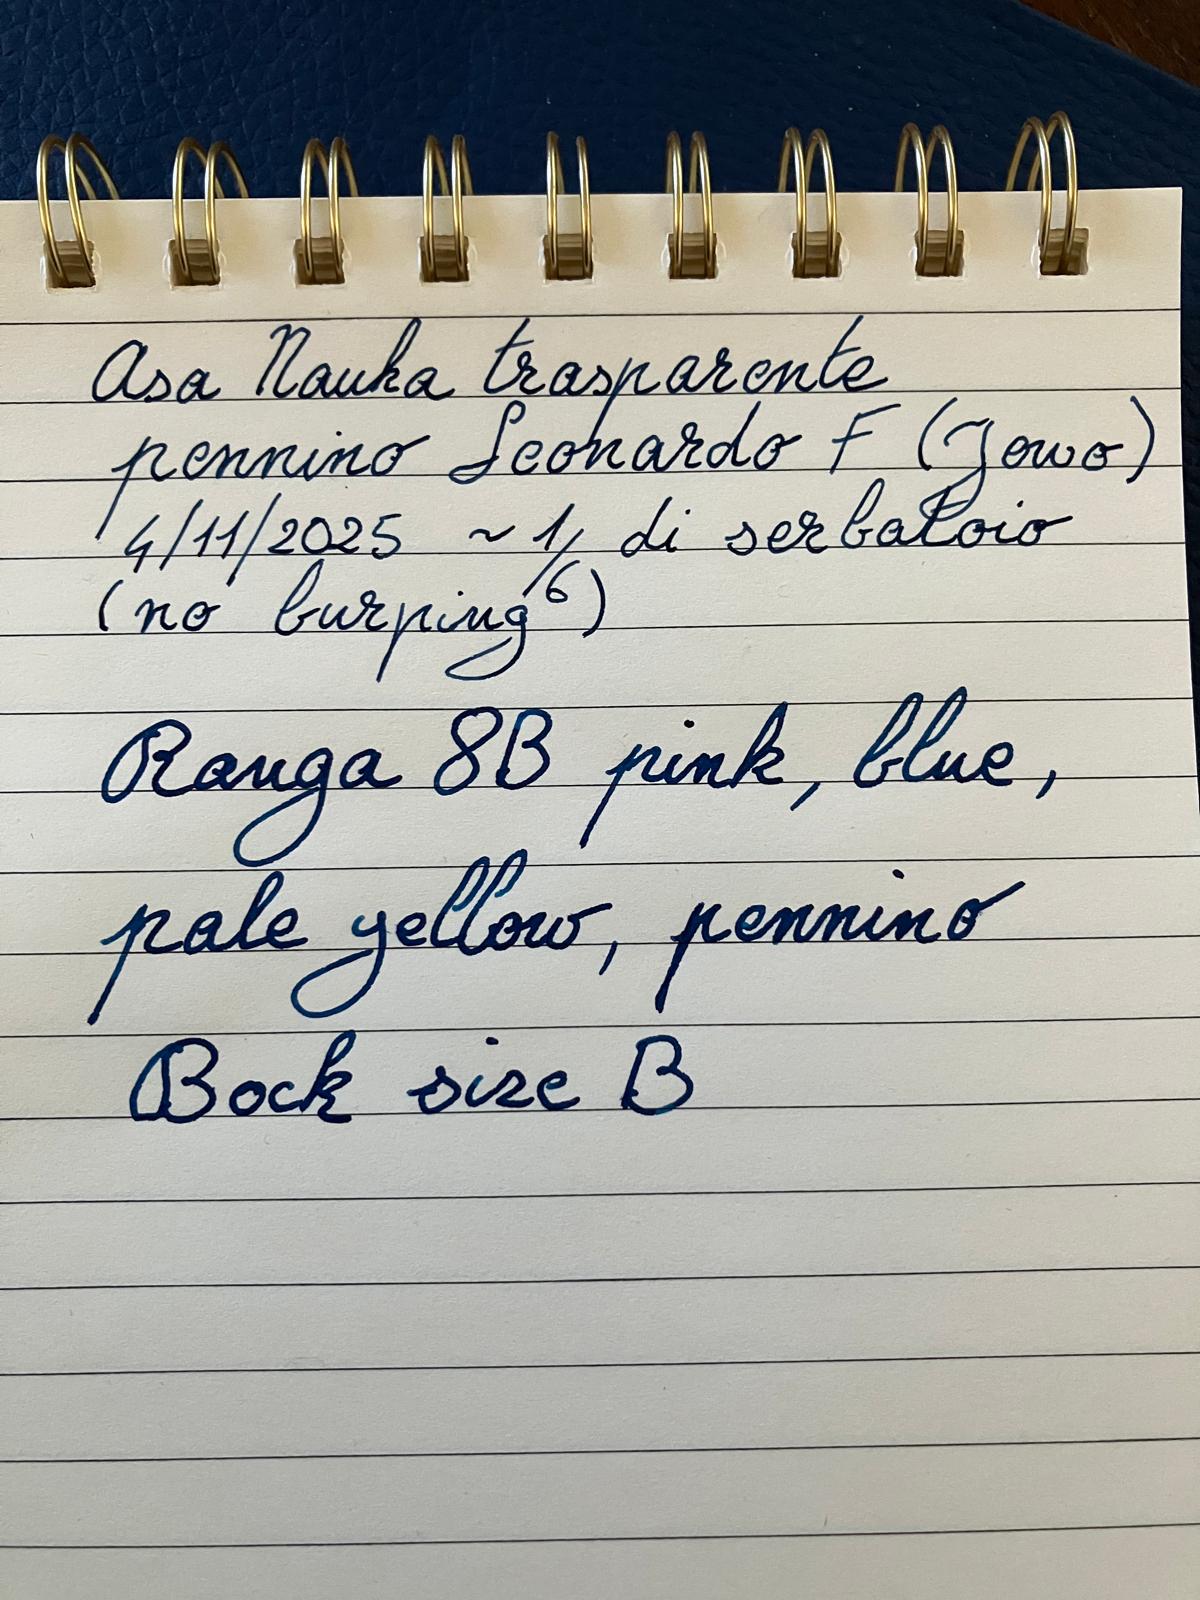 Asa Nauka trasparente
pennino Leonardo F (Jowo)
4/11/2025 ~ 1/6 di serbatoio
(no burping)
Ranga 8B pink, blue,
pale yellow, pennino
Bock size B